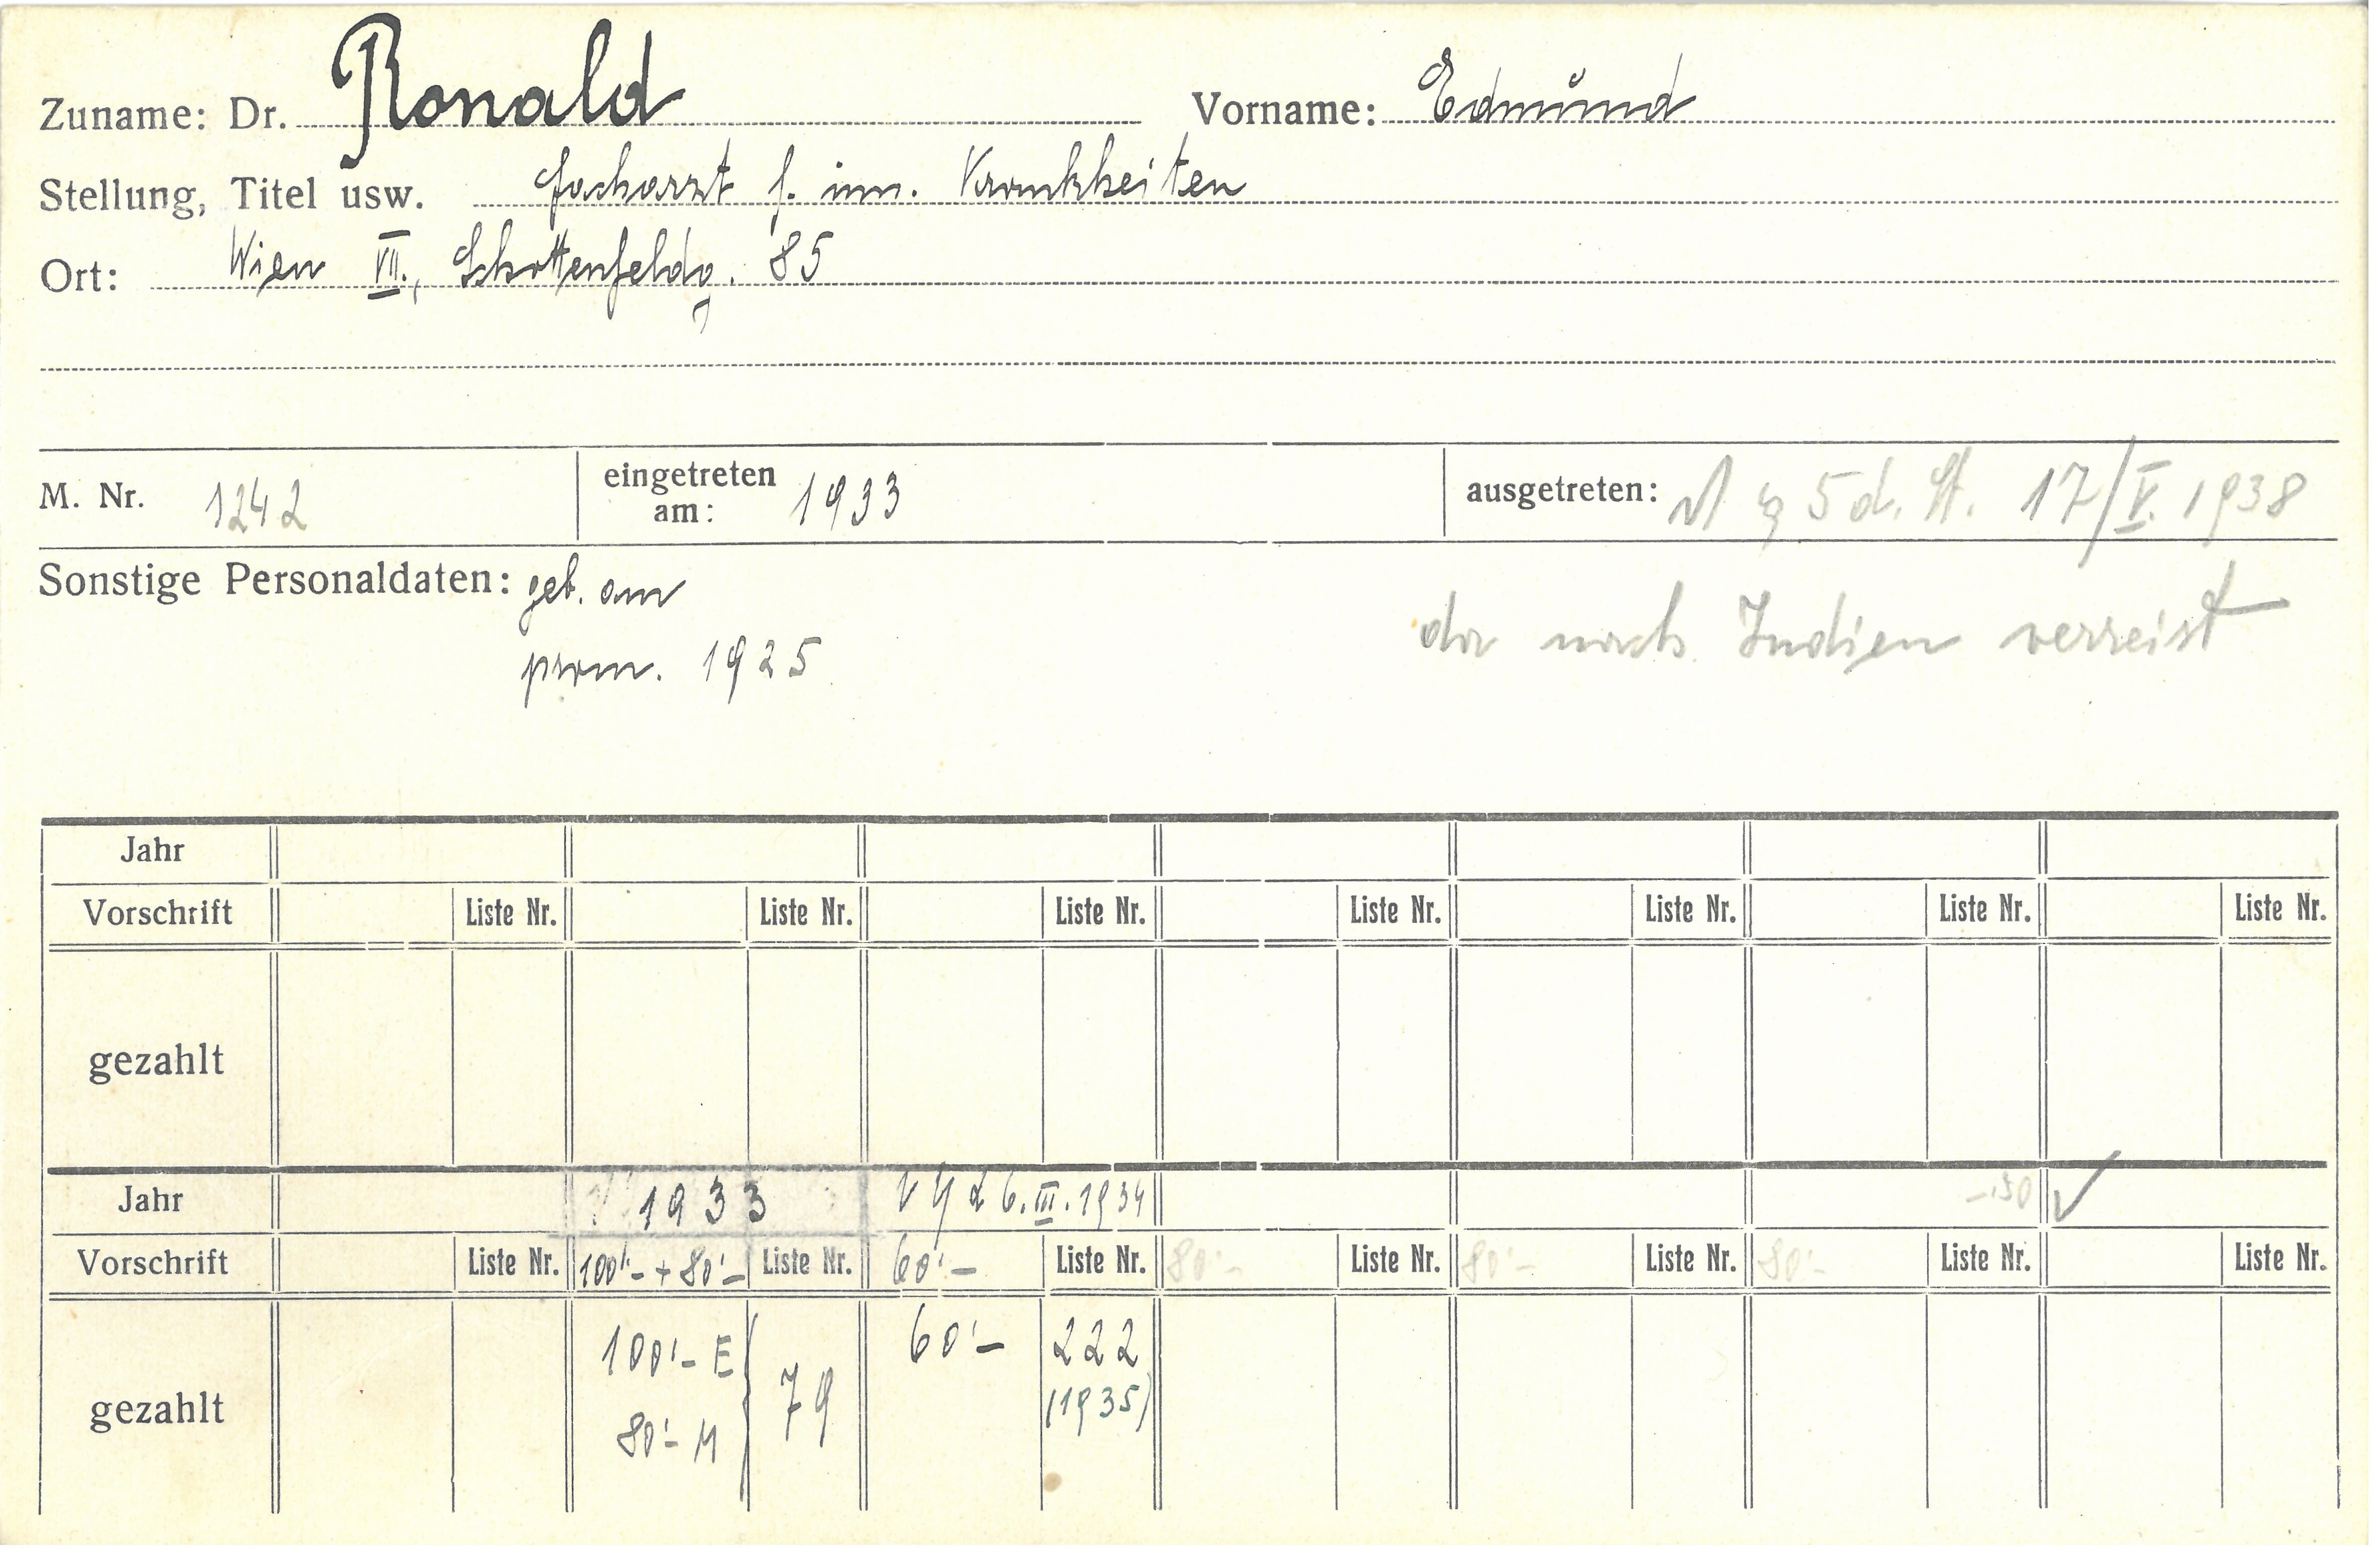 Zuname: Dr. Ronald Vorname: Edmund
Stellung, Titel usw. Facharzt f. inn. Krankheiten
Ort: Wien VII., Schottenfeldg. 85
M. Nr. 1242 eingetreten am: 1933 ausgetreten: § 5 d. St. 17/V. 1938
Sonstige Personaldaten: geb. am
da nach Indien verreist
prom. 1925
Jahr
Vorschrift Liste Nr. Liste Nr. Liste Nr. Liste Nr. Liste Nr. Liste Nr. Liste Nr.
gezahlt
Jahr 1933 6.III.1934
Vorschrift Liste Nr. 100'- + 80'- Liste Nr. 60'- Liste Nr. 80'- Liste Nr. 80'- Liste Nr. 80'- Liste Nr. Liste Nr.
gezahlt 100'- E 79 60'- 222
80'- M (1935)